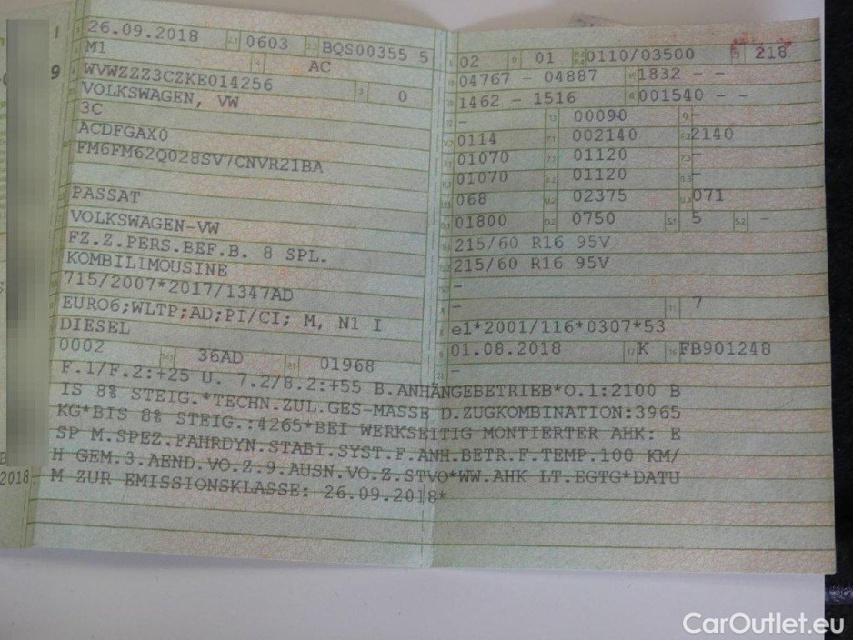 26.09.2018 0603 BQS00355 5
M1 AC
WVWZZZ3CZKE014256 0
VOLKSWAGEN, VW
3C
ACDFGAX0
FM6FM62Q028SV7CNVR2IBA
PASSAT
VOLKSWAGEN-VW
FZ.Z.PERS.BEF.B. 8 SPL.
KOMBILIMOUSINE
715/2007*2017/1347AD
EURO6;WLTP;AD;PI/CI; M, N1 I
DIESEL
0002 36AD 01968
02 01 0110/03500 218
04767 - 04887 1832 - -
1462 - 1516 001540 - -
- 00090 -
0114 002140 2140
01070 01120
01070 01120 -
068 02375 071
01800 0750 5 -
215/60 R16 95V
215/60 R16 95V
-
- 7
e1*2001/116*0307*53
01.08.2018 K FB901248
-
F.1/F.2:+25 U. 7.2/8.2:+55 B.ANHÄNGEBETRIEB*O.1:2100 B
IS 8% STEIG.*TECHN.ZUL.GES-MASSE D.ZUGKOMBINATION:3965
KG*BIS 8% STEIG.:4265*BEI WERKSEITIG MONTIERTER AHK: E
SP M.SPEZ.FAHRDYN.STABI.SYST.F.ANH.BETR.F.TEMP.100 KM/
H GEM.3.AEND.VO.Z.9.AUSN.VO.Z.STVO*WW.AHK LT.EGTG*DATU
M ZUR EMISSIONSKLASSE: 26.09.2018*
2018
9
CarOutlet.eu